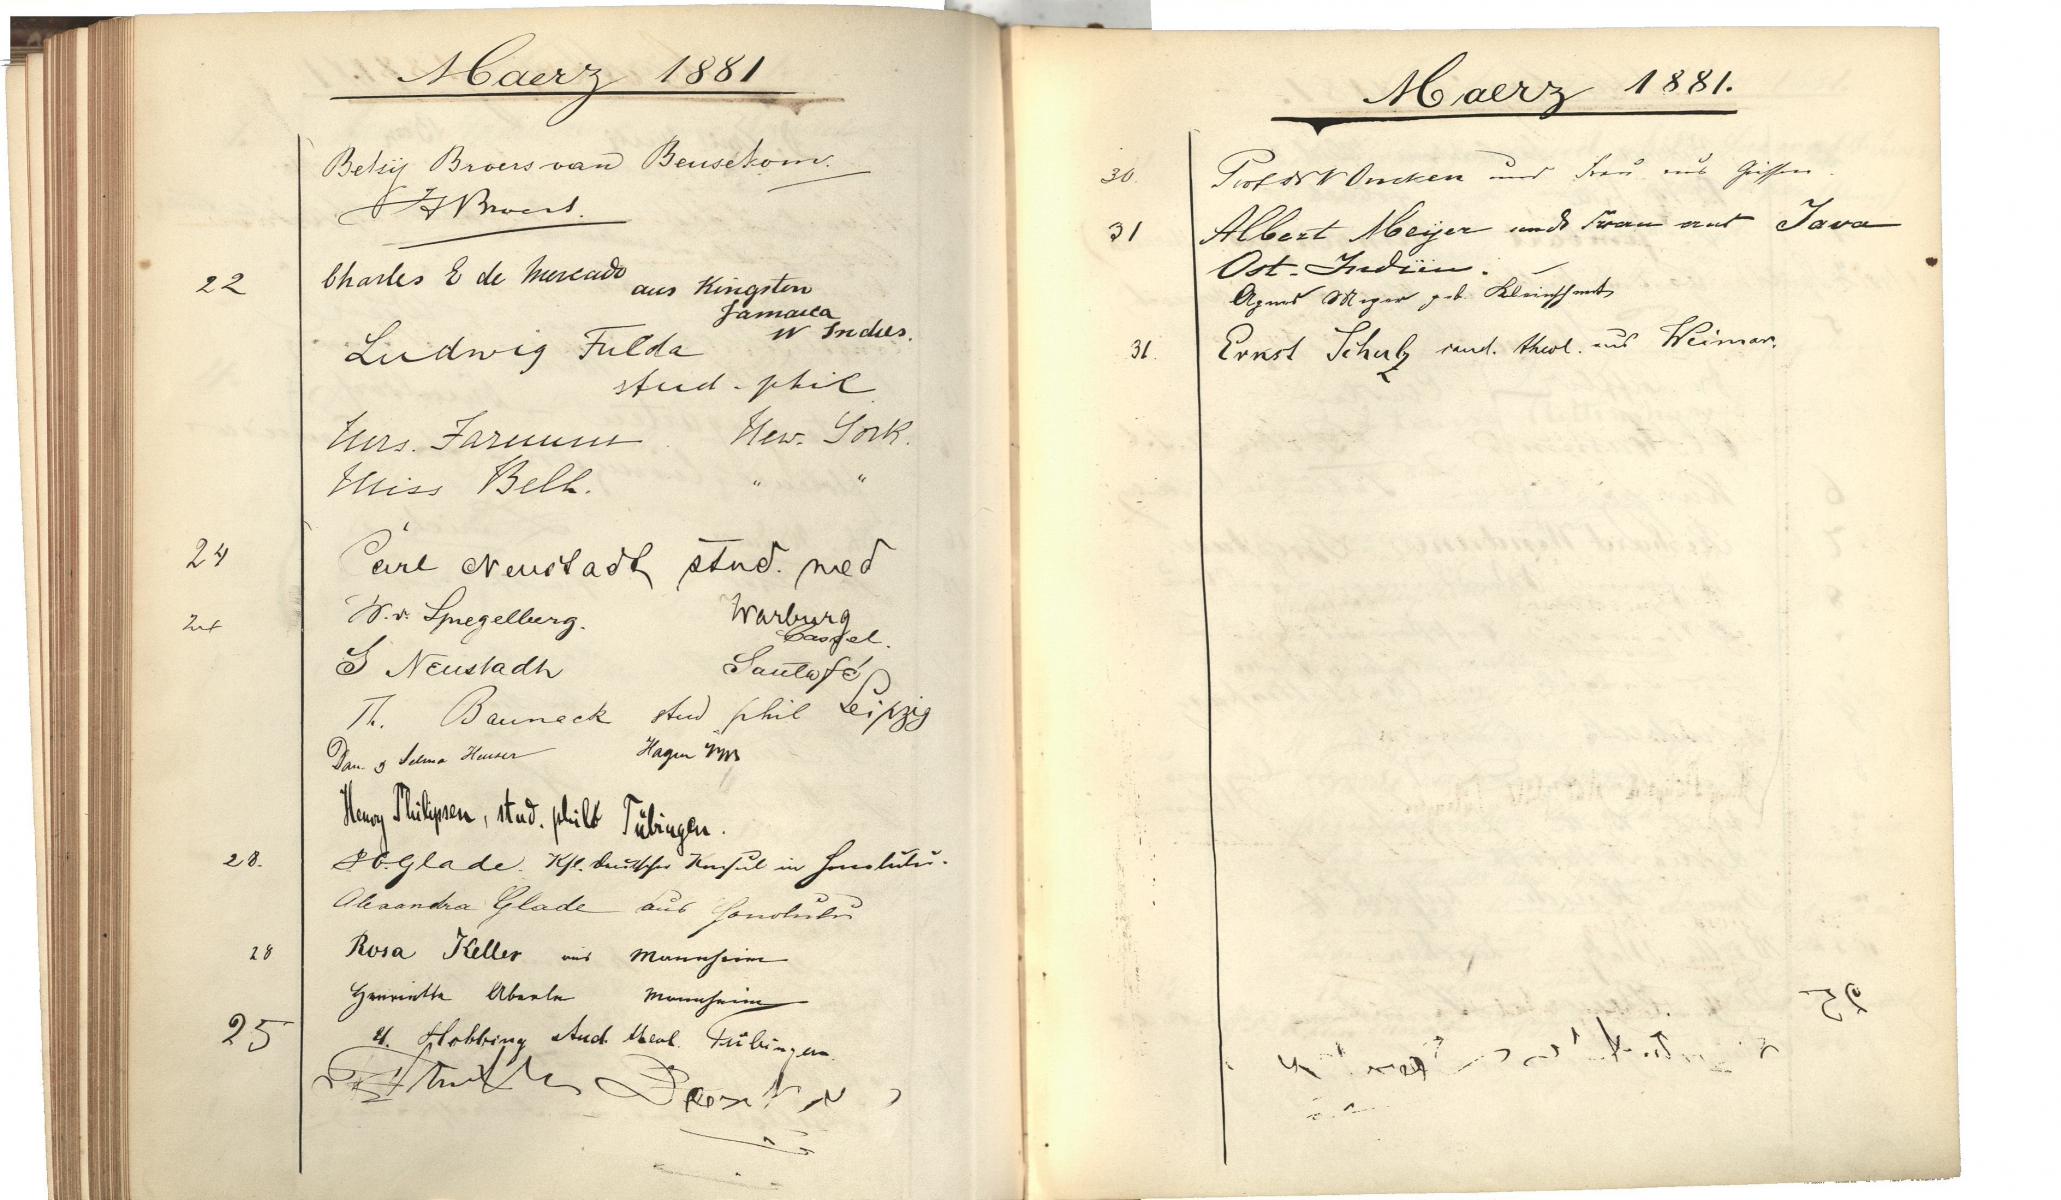 Maerz 1881
Betsy Broers van Beusekom.
Broers.
22 Charles E de Mercado aus Kingston
Jamaica
W Indies.
Ludwig Fulda
stud. phil
Mrs. Farnum New. York.
Miss Bell. " "
24 Carl Neustadt stud. med
24 W. v. Spiegelberg. Warburg
Cassel.
S Neustadt Santa fé
Th. Baunack stud phil Leipzig
Dan. & Selma Heuser Hagen
Henry Philipsen, stud. phil Tübingen.
28. Glade. Deutscher Konsul in Honolulu.
Alexandra Glade aus Honolulu
28 Rosa Keller aus Mannheim
Henriette Aberle Mannheim
25 H. Hobbing stud. theol. Tübingen.
Maerz 1881.
30. Prof Dr Oncken und Frau aus Giessen.
31 Albert Meijer und Frau aus Java
Ost-Indien.
Agnes Meyer geb. Kleinschmit
31. Ernst Schulz cand. theol. aus Weimar.
25